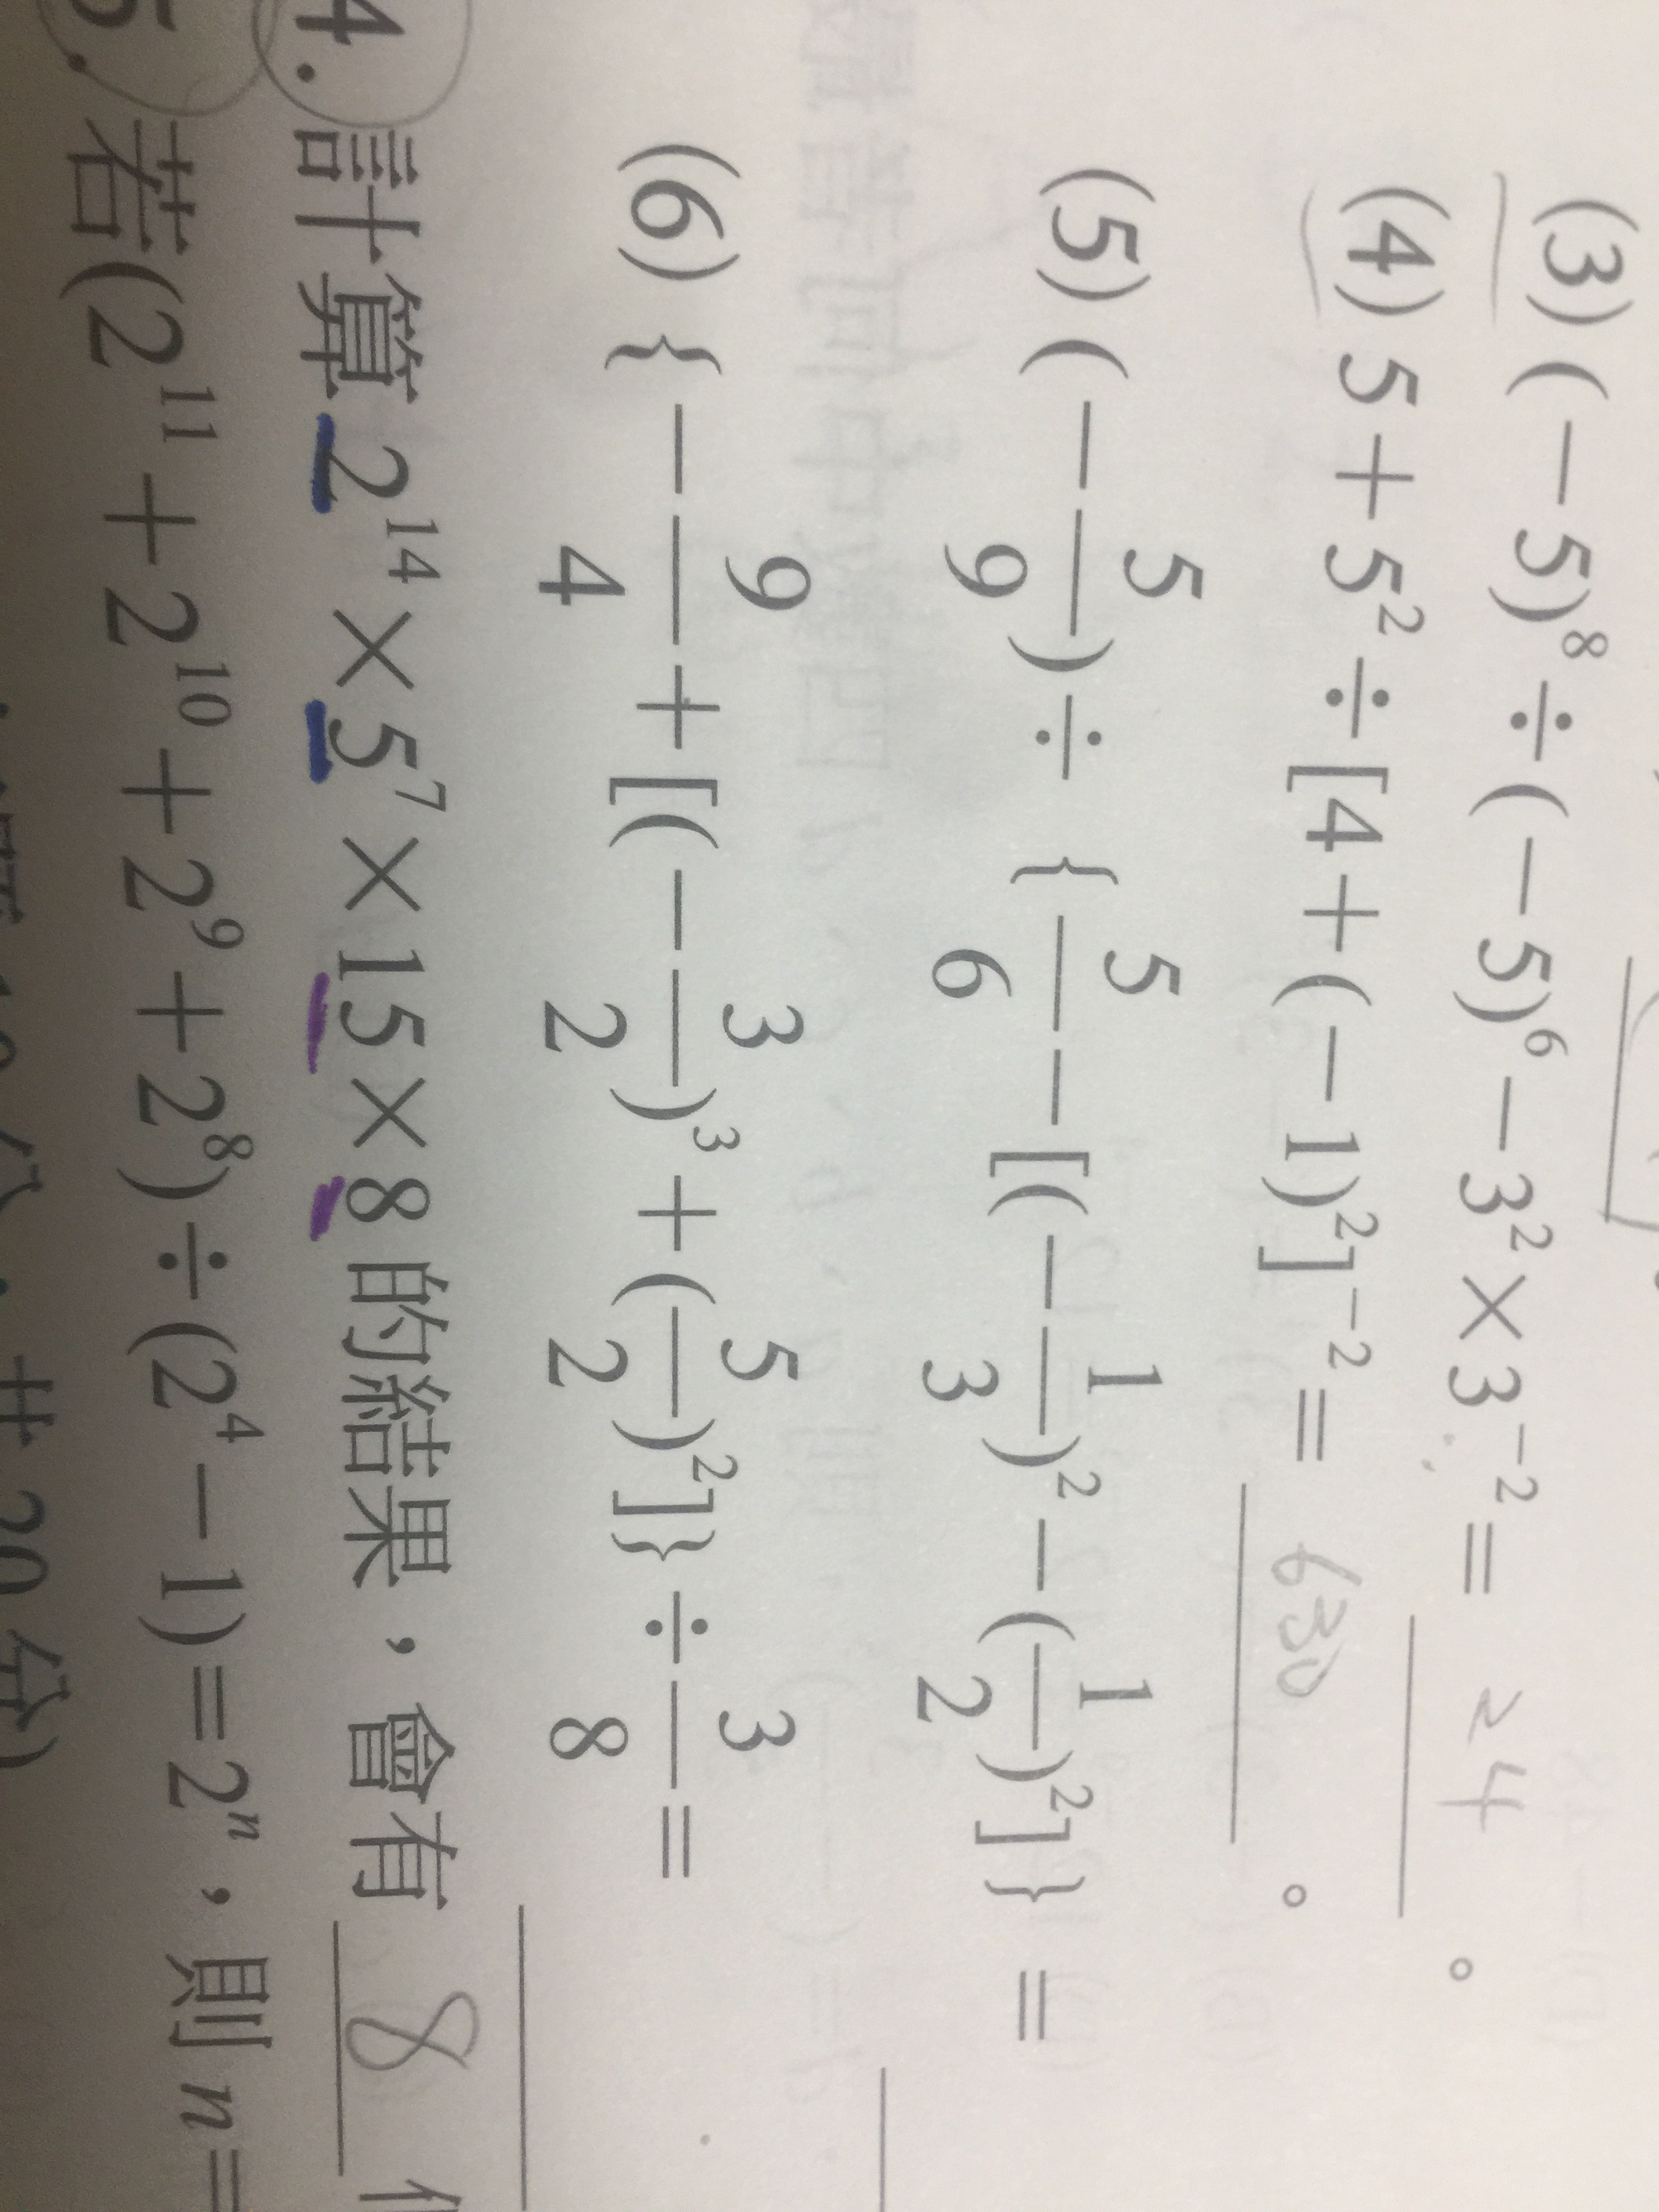 (3) (－5)⁸÷(－5)⁶－3²×3⁻²＝ 24 。
(4) 5＋5²÷[4＋(－1)²]⁻²＝ 630 。
(5) (－5/9)÷{5/6－[(－1/3)²－(1/2)²]}＝
(6) {－9/4＋[(－3/2)³＋(5/2)²]}÷3/8＝
4. 計算 2¹⁴×5⁷×15×8 的結果，會有 8
5. 若(2¹¹＋2¹⁰＋2⁹＋2⁸)÷(2⁴－1)＝2ⁿ，則 n＝
20 分)